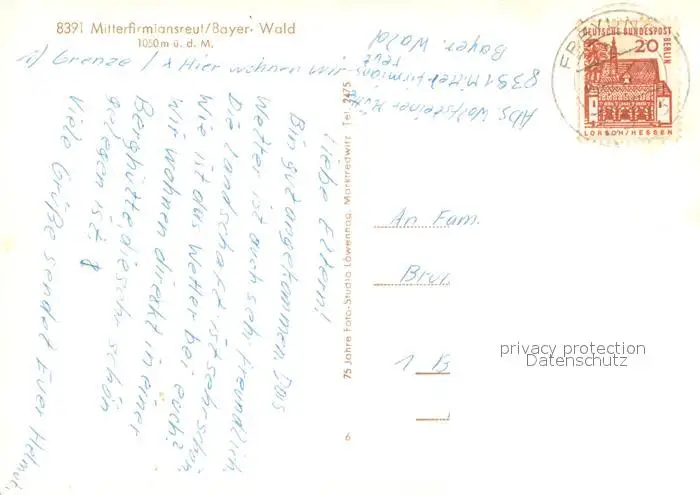 8391 Mitterfirmiansreut/Bayer. Wald
1050m ü. d. M.
1) Grenze / x Hier wohnen wir
Liebe Eltern!
Bin gut angekommen Das
Wetter ist auch sehr freundlich.
Die Landschaft ist sehr schön
Wie ist das Wetter bei euch?
Wir wohnen direkt in einer
Berghütte, die sehr schön
gelegen ist.
Viele Grüße sendet Euer Helmut.
75 Jahre Foto-Studio Löwenhag, Marktredwitz Tel. 2475
6
Abs Wolfsteiner Hütte
8391 Mitterfirmians
reut
Bayer. Wald
DEUTSCHE BUNDESPOST
BERLIN
20
LORSCH/HESSEN
An Fam.
1 B
privacy protection
Datenschutz